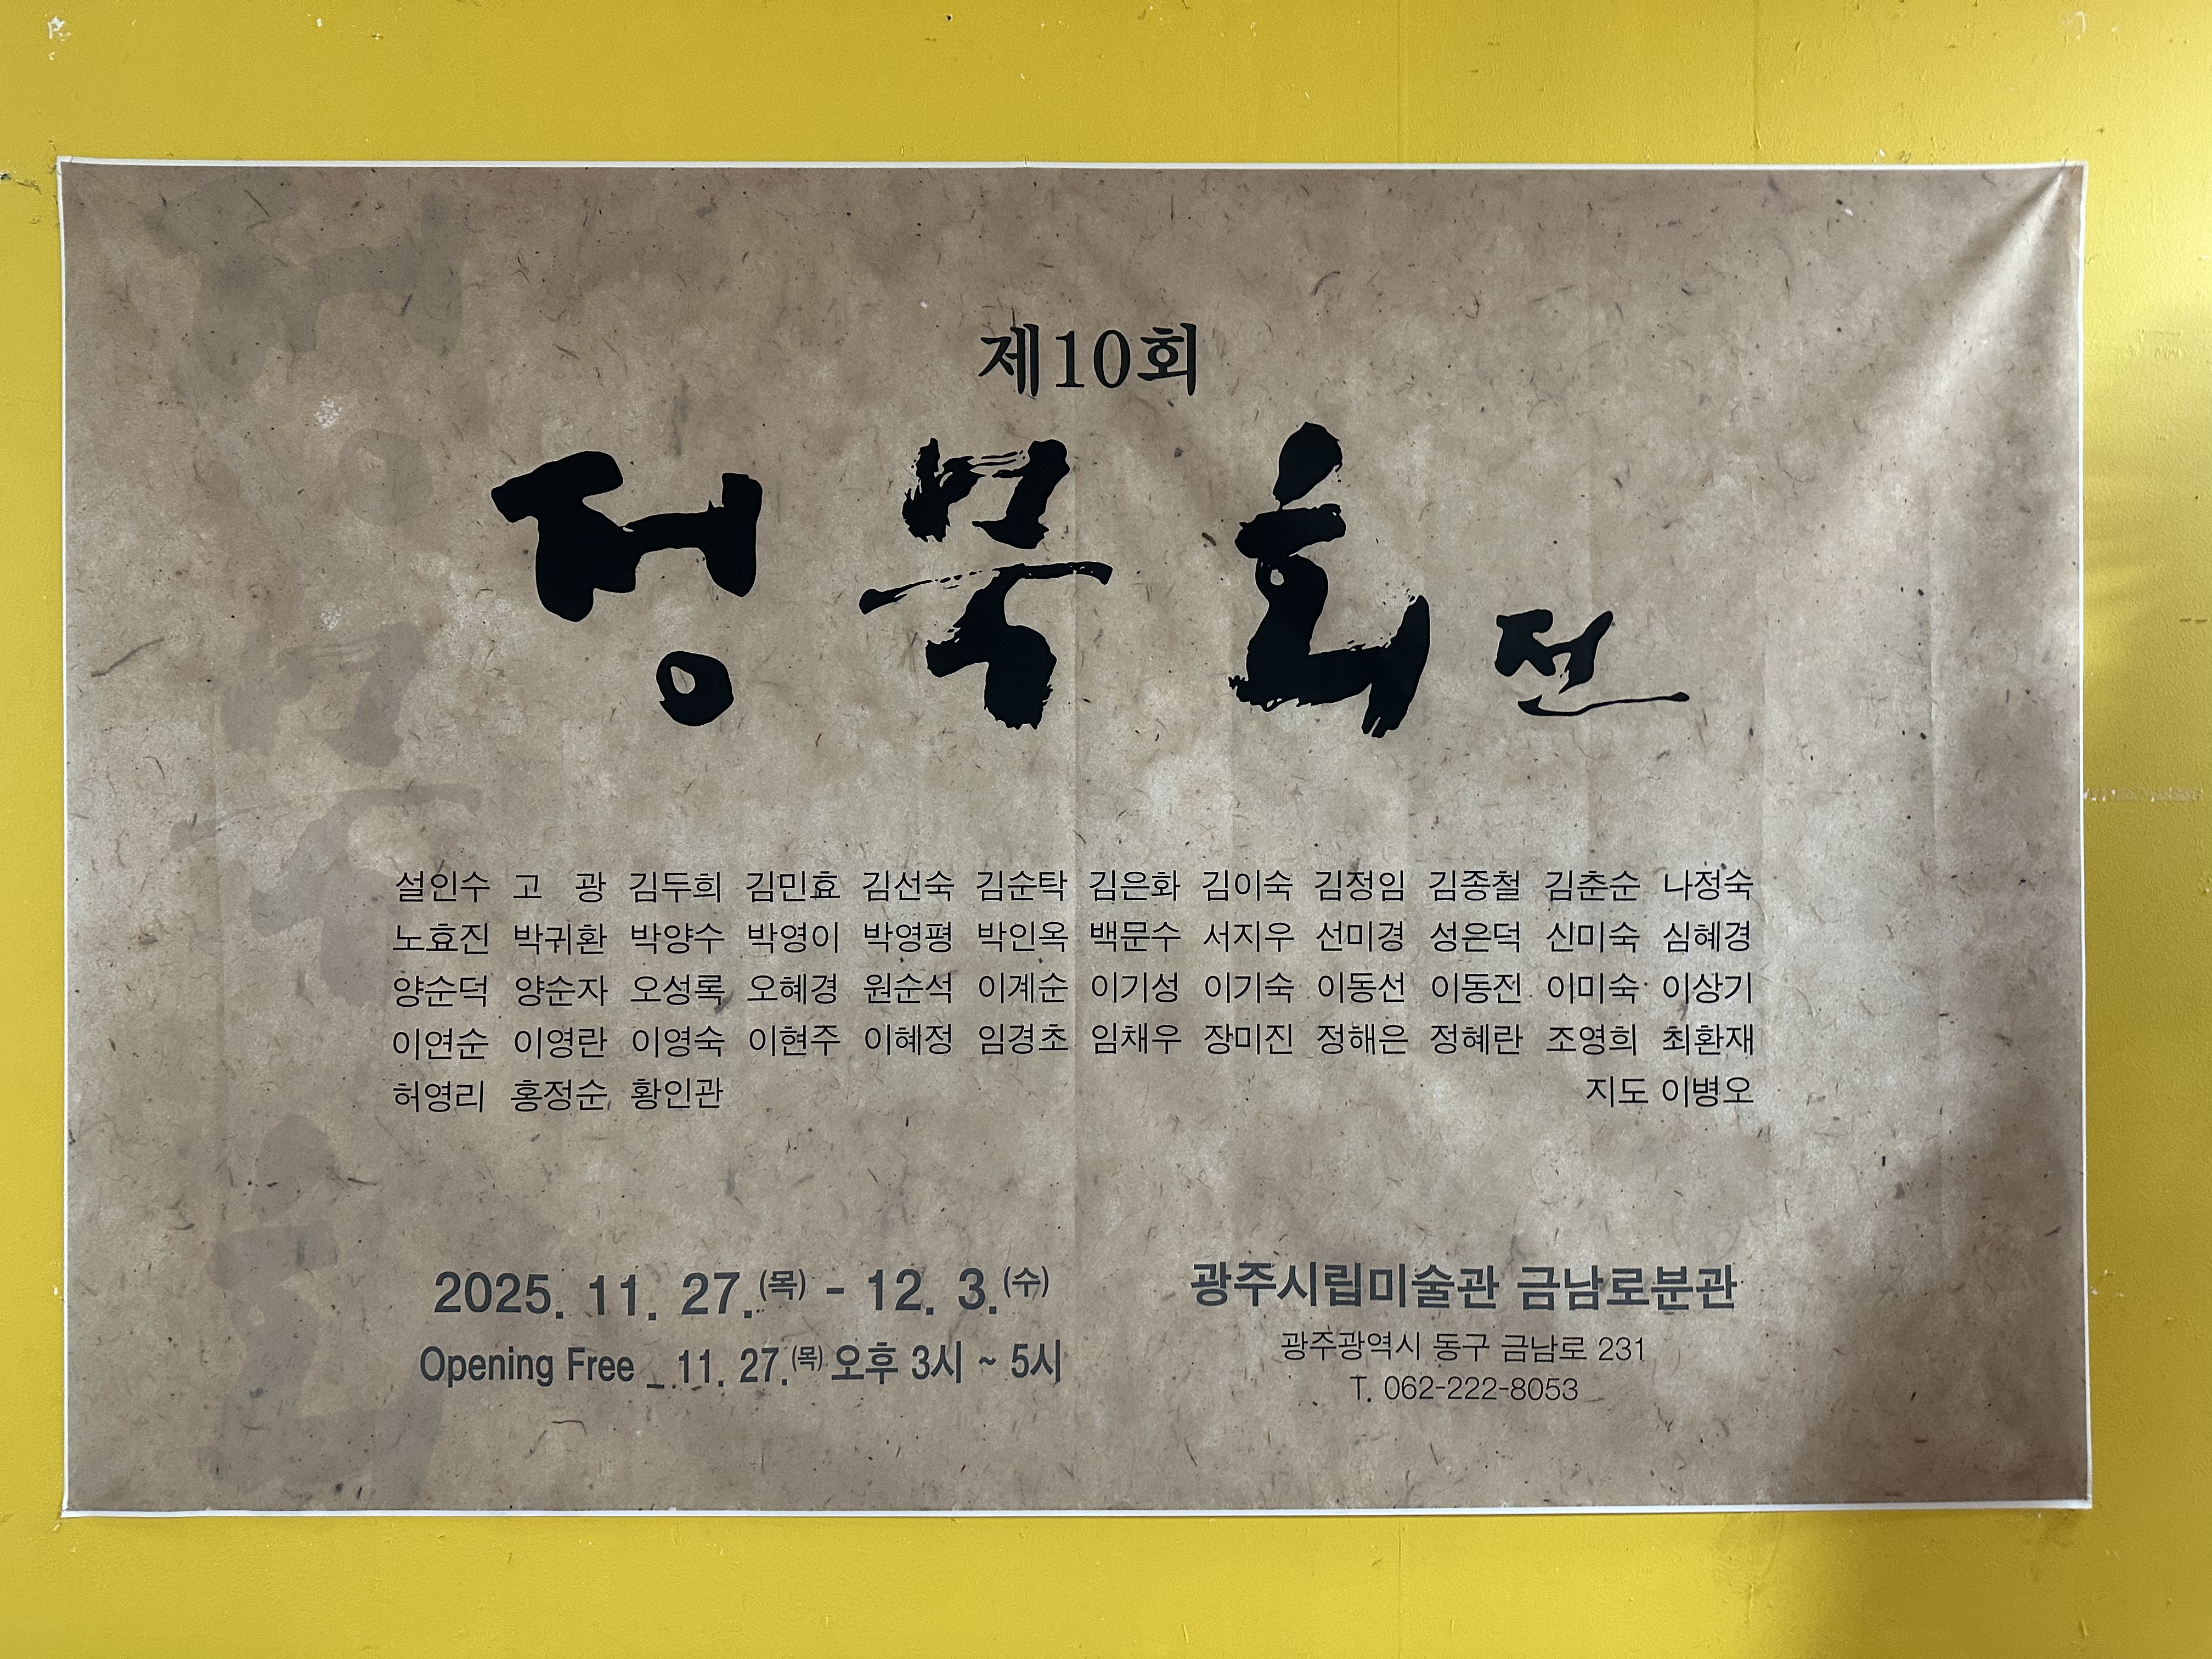 제10회
정묵회전
설인수 고 광 김두희 김민효 김선숙 김순탁 김은화 김이숙 김정임 김종철 김춘순 나정숙
노효진 박귀환 박양수 박영이 박영평 박인옥 백문수 서지우 선미경 성은덕 신미숙 심혜경
양순덕 양순자 오성록 오혜경 원순석 이계순 이기성 이기숙 이동선 이동전 이미숙 이상기
이연순 이영란 이영숙 이현주 이혜정 임경초 임채우 장미진 정해은 정혜란 조영희 최환재
허영리 홍정순 황인관 지도 이병오
2025. 11. 27.(목) - 12. 3.(수)
Opening Free _ 11. 27.(목) 오후 3시 ~ 5시
광주시립미술관 금남로분관
광주광역시 동구 금남로 231
T. 062-222-8053